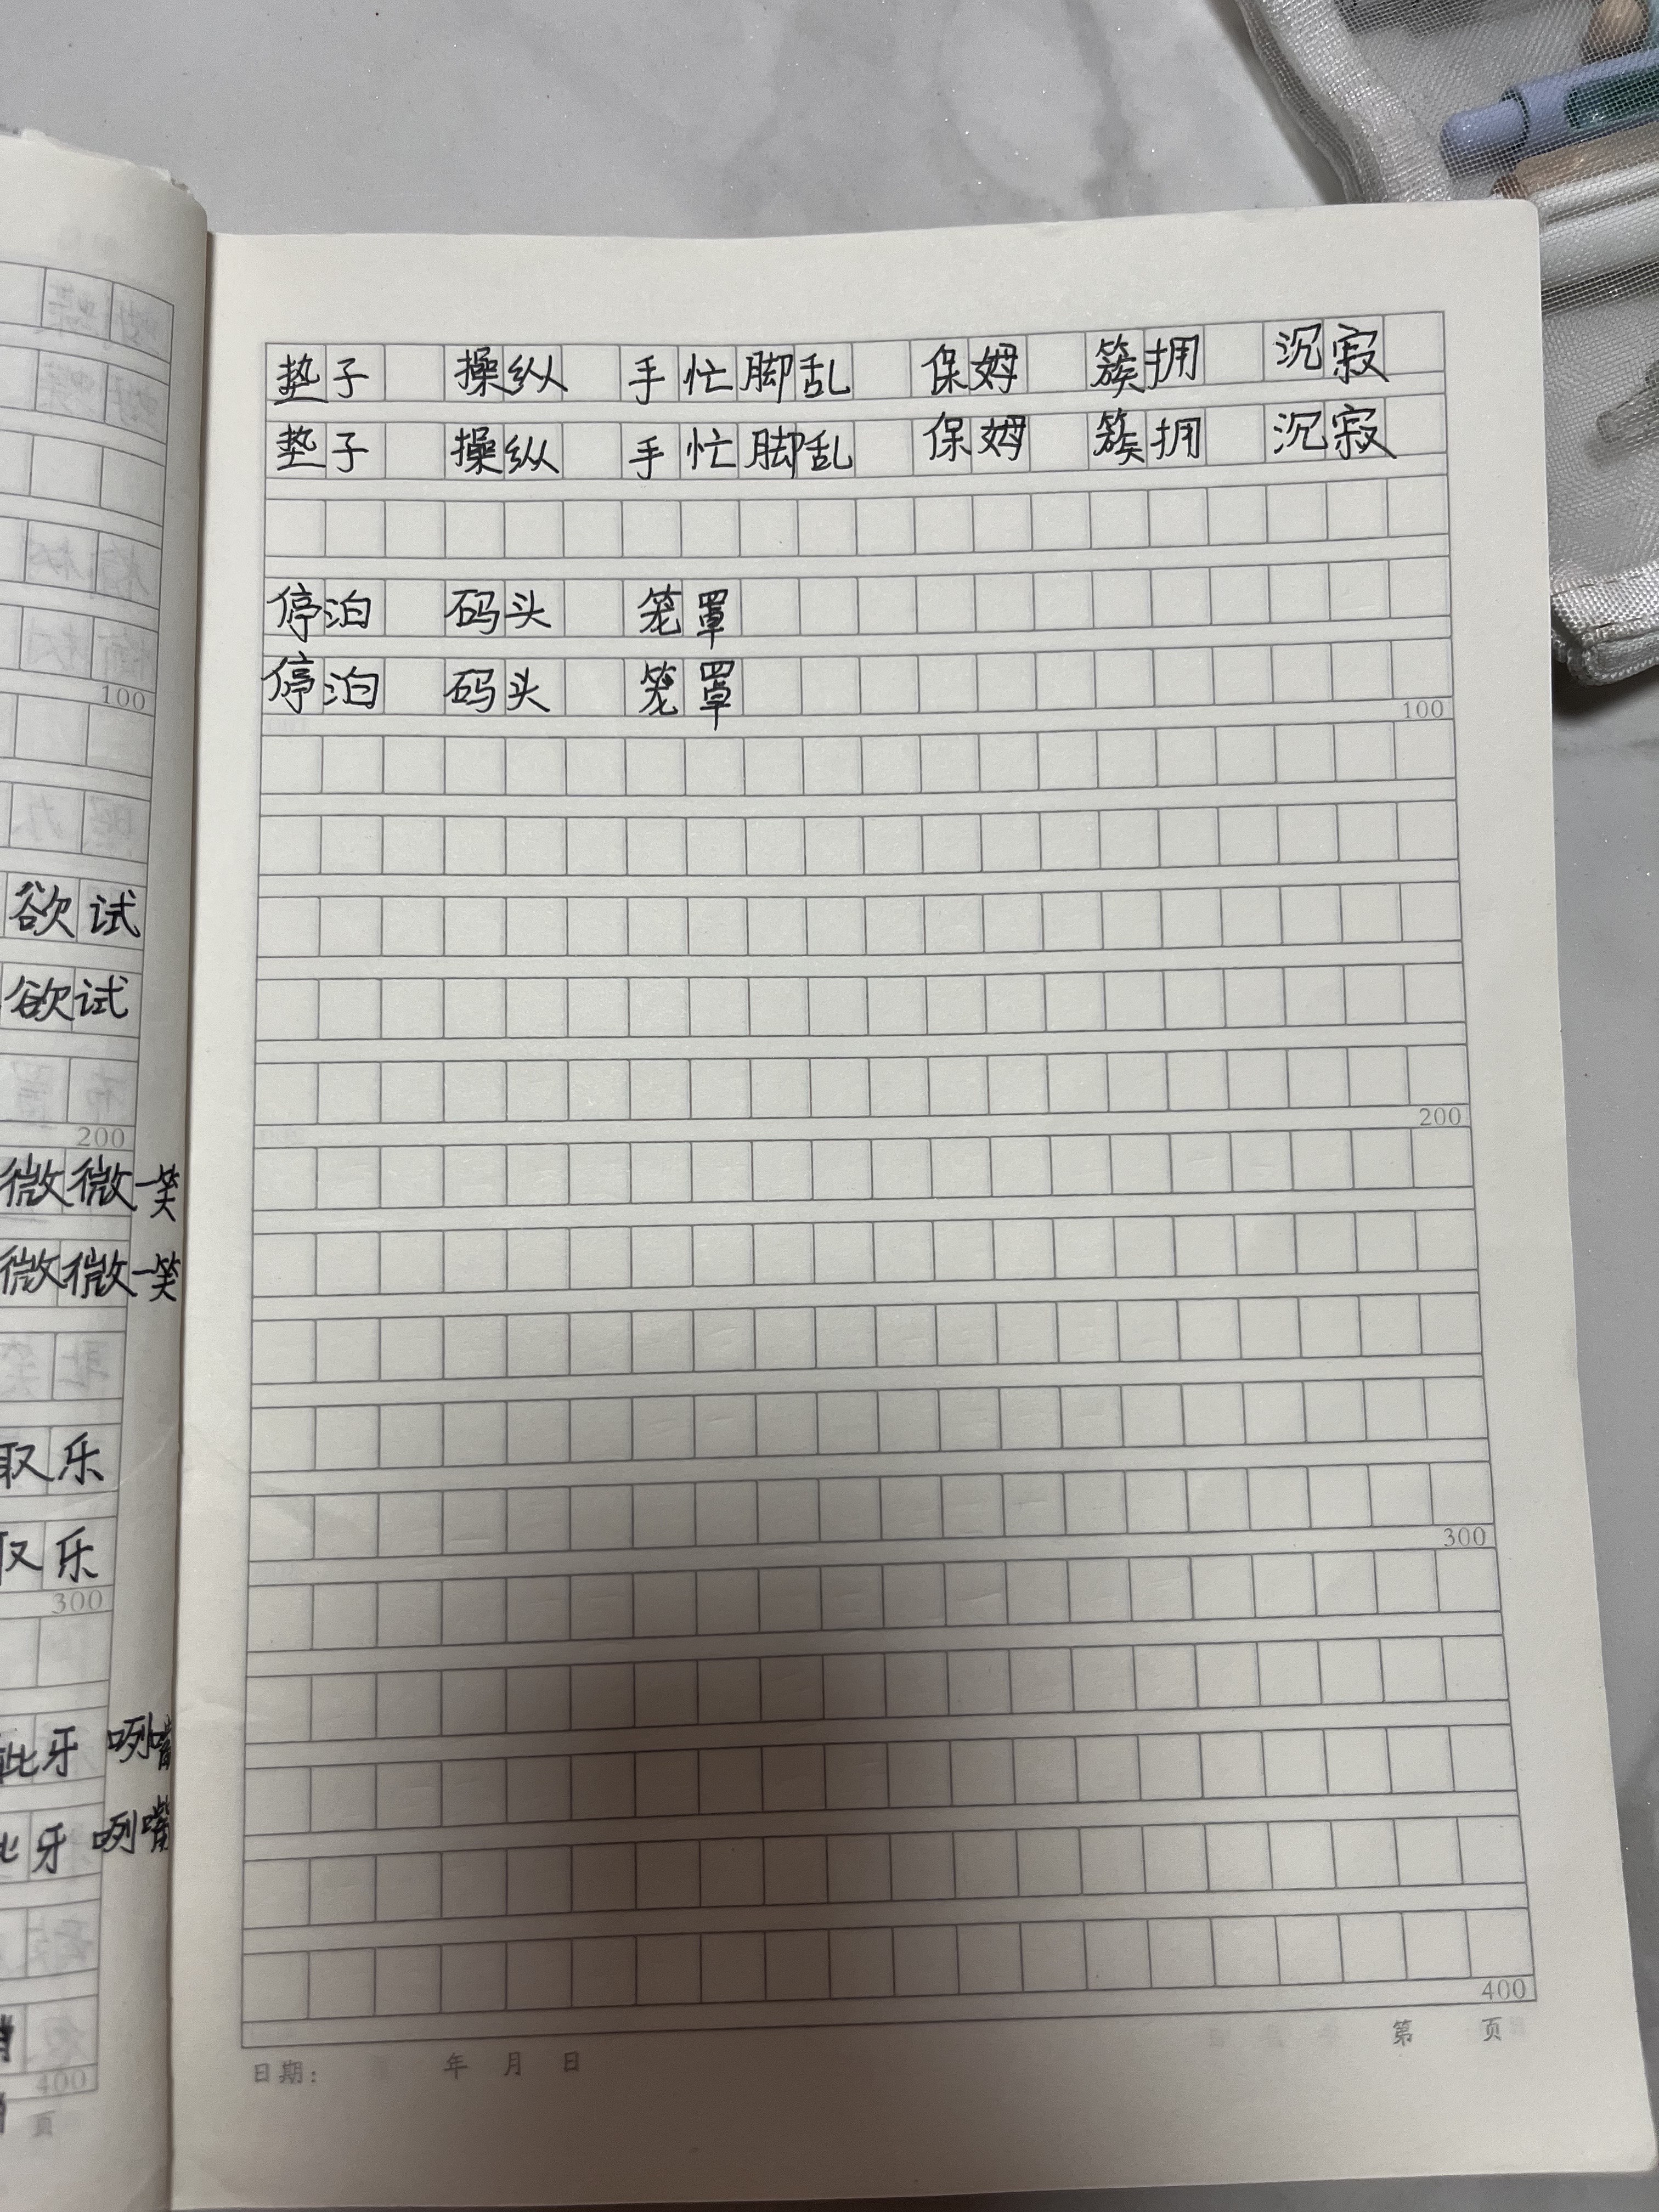 欲试
欲试
200
微微一笑
微微一笑
取乐
取乐
300
牙咧嘴
牙咧嘴
400
页
垫子 操纵 手忙脚乱 保姆 簇拥 沉寂
垫子 操纵 手忙脚乱 保姆 簇拥 沉寂
停泊 码头 笼罩
停泊 码头 笼罩
100
200
300
400
第 页
日期: 年 月 日